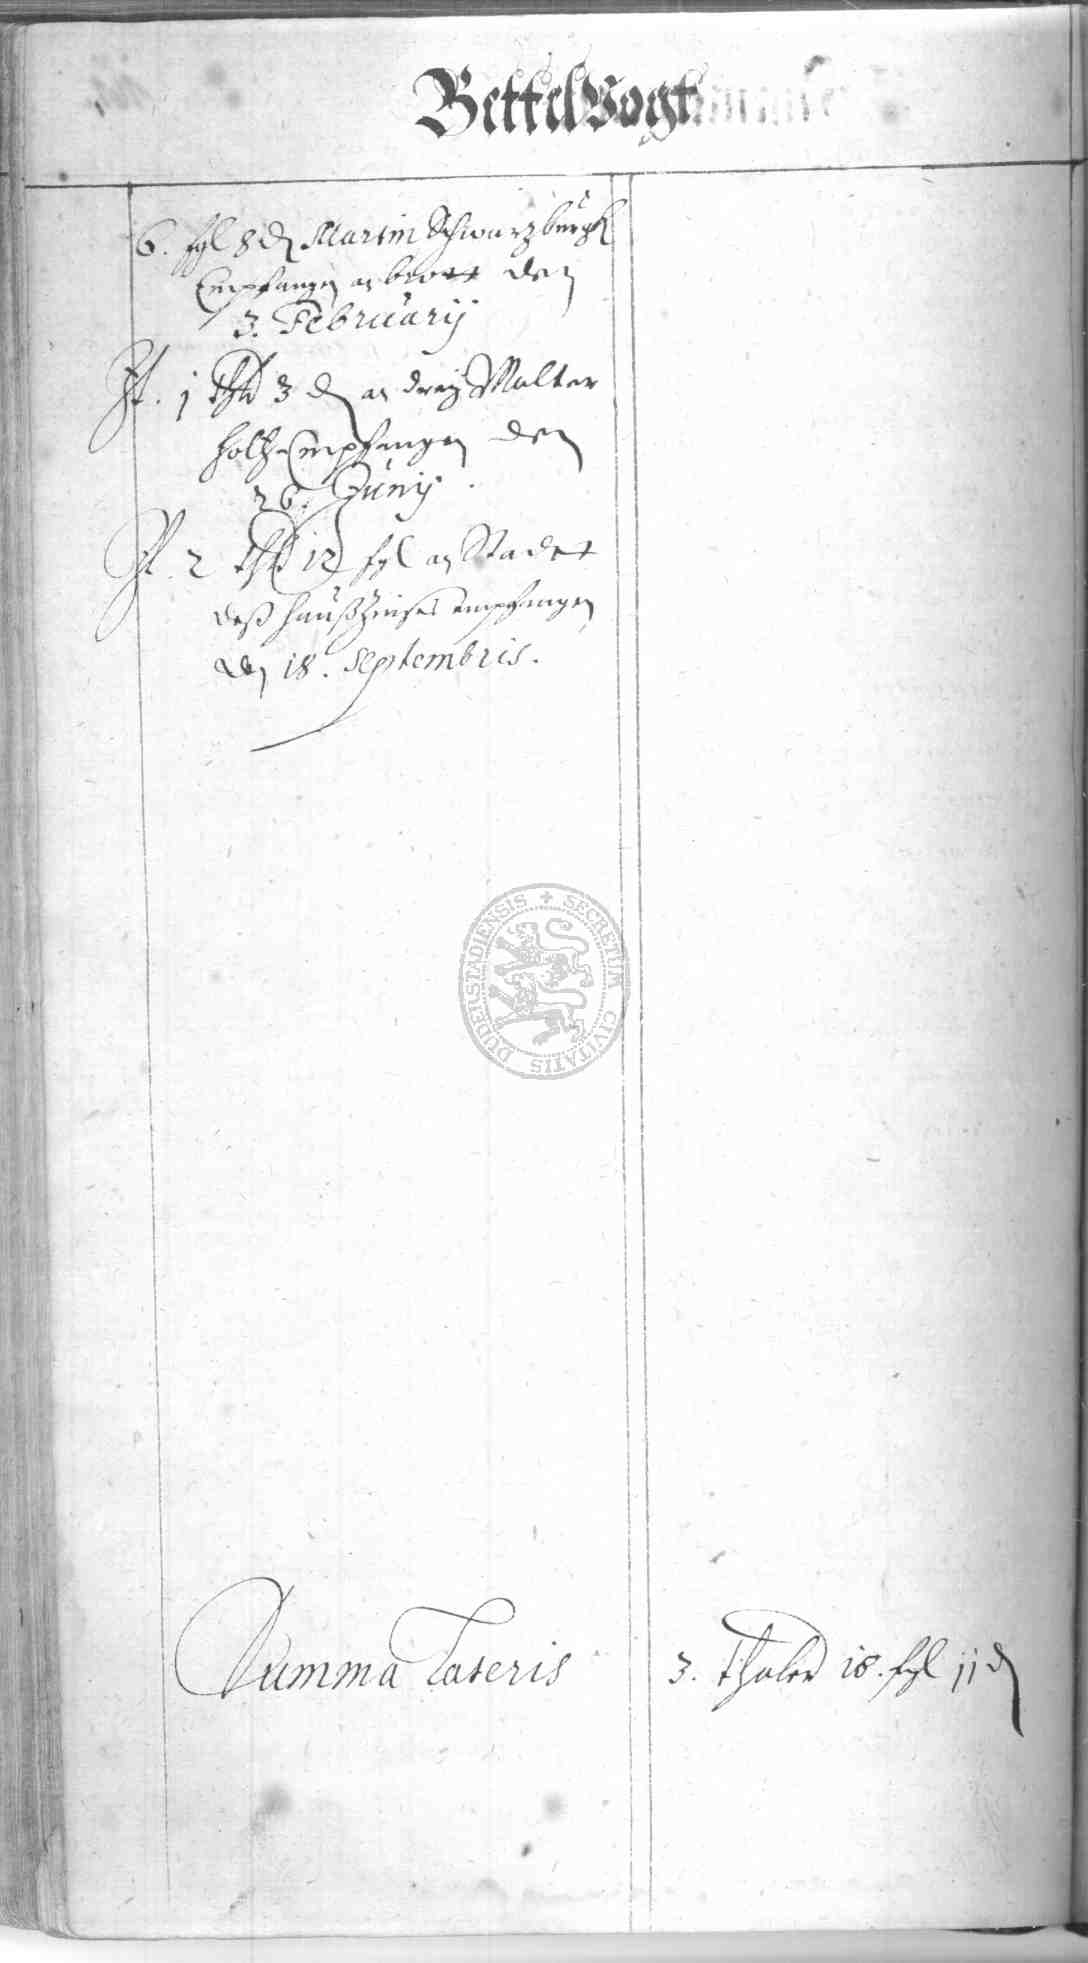 BettelVogt
6. fgl 8 d Martin Schwartzbürgk
Empfangen an brott den
3. Februarij
It. 1 thl 3 d an dreij Malter
holtz Empfangen den
26. Junij.
It. 2 thl 12 fgl an Stadt
deß haußzinses empfangen
den 18. Septembris.
SECRETUM CIVITATIS DUDERSTADIENSIS
Summa Lateris 3. thaler 18. fgl 11 d